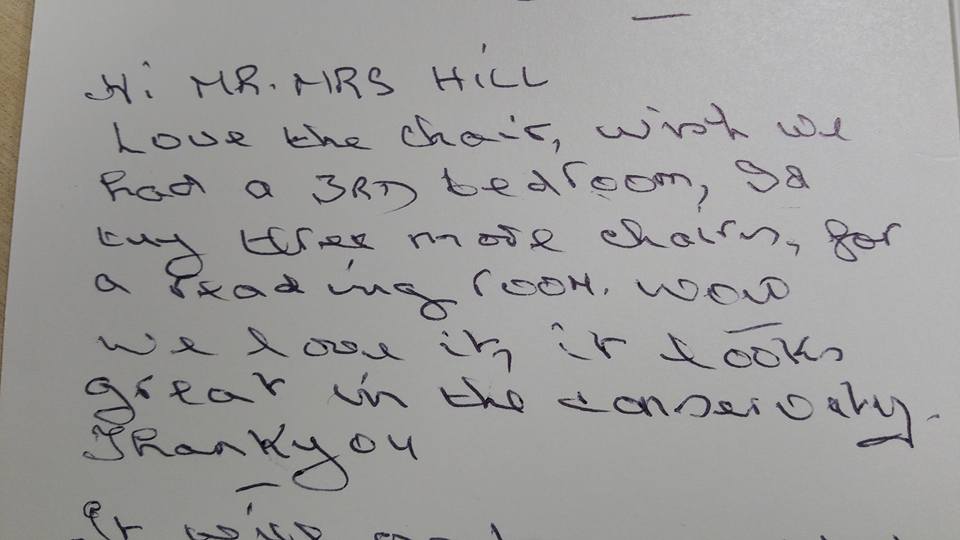 Hi MR. MRS HILL
Love the chair, wish we
had a 3RD bedroom, Id
buy three more chairs, for
a reading room. WOW
we love it, it looks
great in the conservaty.
Thankyou
It will